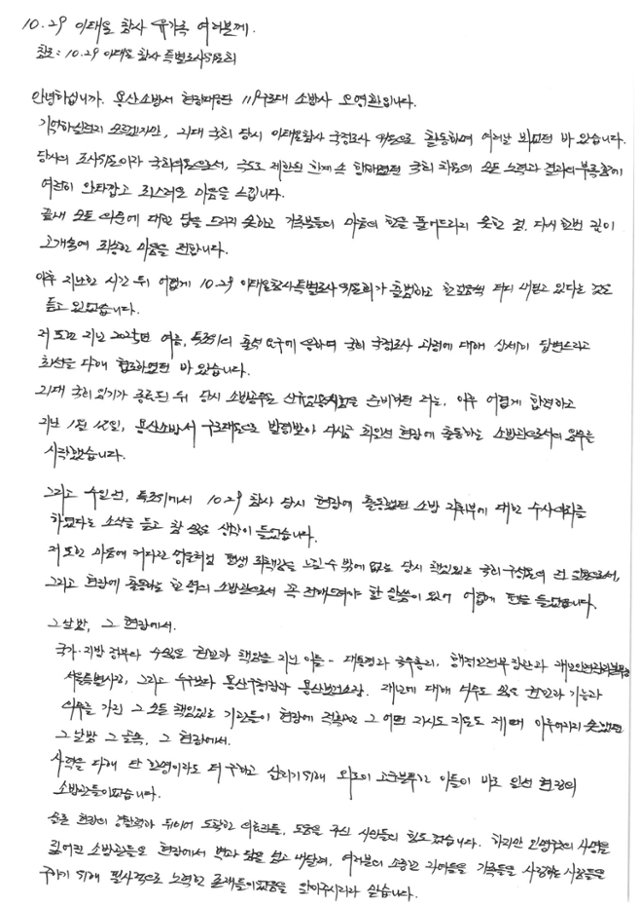 10.29 이태원 참사 유가족 여러분께.
참조: 10.29 이태원 참사 특별조사위원회
안녕하십니까. 용산소방서 현장대응단 119구조대 소방사 오영환입니다.
기억하실런지 모르겠지만, 21대 국회 당시 이태원참사 국정조사 위원으로 활동하며 여러날 뵈었던 바 있습니다.
당시의 조사위원이자 국회의원으로서, 극도로 제한된 한계 속 국회 차원의 노력과 결과의 부족함에
여전히 안타깝고 죄스러운 마음을 느낍니다.
끝내 모든 의문에 대한 답을 드리지 못하고 가족분들의 마음의 한을 풀어드리지 못한 점, 다시 한번 깊이
고개숙여 죄송한 마음을 전합니다.
이후 지난한 시간 뒤 어렵게 10.29 이태원참사특별조사위원회가 출범하고 한걸음씩 내딛고 있다는 것도
듣고 있었습니다.
저 또한 지난 2025년 여름, 특조위의 출석 요구에 응하며 국회 국정조사 과정에 대해 상세히 답변드리고
최선을 다해 협조하였던 바 있습니다.
21대 국회 임기가 종료된 뒤 당시 소방공무원 신규임용시험을 준비하던 저는, 이후 어렵게 합격하고
지난 1월 12일, 용산소방서 구조대원으로 발령받아 최일선 현장에 출동하는 소방관으로서의 임무를
시작했습니다.
그리고 수일 전, 특조위에서 10.29 참사 당시 현장에 출동했던 소방 지휘부에 대한 수사의뢰를
하였다는 소식을 듣고 참 많은 생각이 들었습니다.
저 또한 마음에 커다란 평생 죄책감을 느낄 수 밖에 없는 당시 책임있는 국회 구성원의 한 으로서,
그리고 현장에 출동하는 한 명의 소방관으로서 꼭 전해드려야 할 말씀이 있어 어렵게 펜을 들었습니다.
그날 밤, 그 현장에서.
국가·지방 정부의 수많은 권한과 책임을 지닌 이들 - 대통령과 국무총리, 행정안전부 장관과
서울특별시장, 그리고 누구보다 용산구청장과 용산보건소장. 재난에 대해 너무도 많은 권한과 기능과
의무를 가진 그 모든 책임있는 기관들이 현장에 그 어떤 지시도 지원도 제때 이루어지지 못했던
그 날 밤 그 골목, 그 현장에서.
사력을 다해 단 한명이라도 더 구하고 살리기위해 이들이 바로 일선 현장의
소방관들이었습니다.
물론 현장의 경찰력과 뒤이어 도착한 의료진들, 도움을 주신 시민들의 힘도 컸습니다. 하지만 인명구조의 사명을
짊어진 소방관들은 현장에서 내달려, 여러분의 소중한 자녀들을 가족들을 사랑하는 사람들을
구하기 위해 필사적으로 노력한 존재들이었음을 알아주시리라 싶습니다.